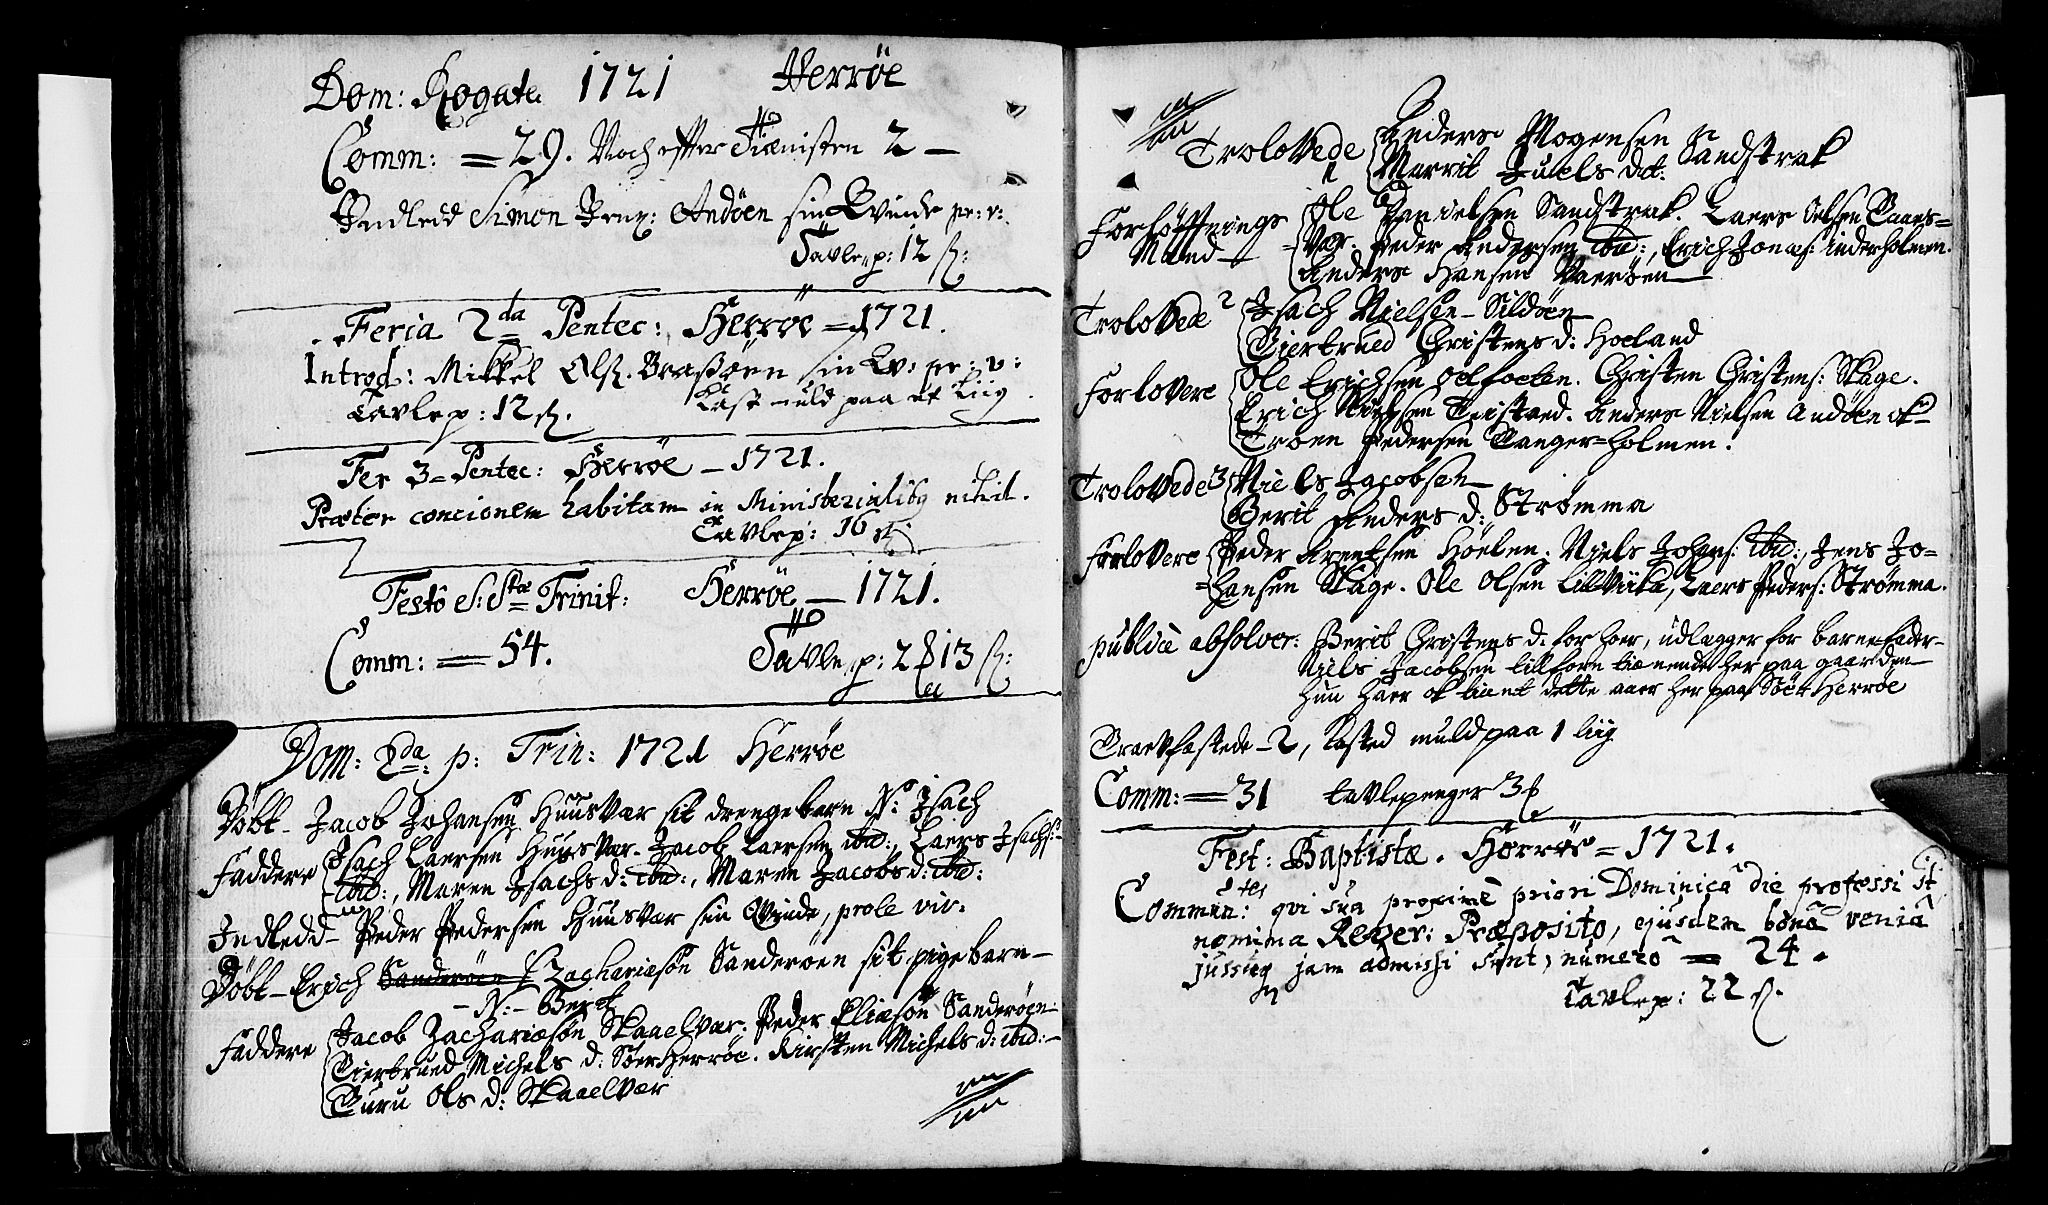 Dom: Rogate 1721 Herrøe
Comm: = 29. Noch effter Tiænisten 2 –
Indledd Simon Andøen sin Qvinde pr: v:
Tavle p: 12 ß:
Feria 2da Pentec: Herrøe = 1721.
Introd: Mikkel Olß. Braßøen sin Qv: pr: v:
Tavlep: 12 ß. Kast muld paa et Liig.
Fer 3= Pentec: Herrøe – 1721.
Præter concionem habitam in Ministerialibg nihil.
Tavlep: 16 ß:
Festo S:Stæ Trinit: Herrøe – 1721.
Comm: = 54. Tavle p: 2 13 ß:
Dom: 2da: p: Trin: 1721 Herrøe
Døbt – Jacob Johansen Huusvær sit drengebarn N: Isach
Faddere Isach Laersen Huusvær. Jacob Laersen ibid:, Laers Isachs:
ibid:, Maren Isachs d: ibid:, Maren Jacobs d: ibid:
Indledd – Peder Pedersen Huusvær sin Qvinde, prole viv.
Døbt – Erich Sanderøen Zachariæsøn Sanderøen sit pigebarn –
– N: – Berit
Faddere Jacob Zachariæsøn Skaaelvær. Peder Eliæsøn Sanderøen
Giertrued Michels d: SøerHerrøe. Kirsten Michels d: ibid: –
Guru Ols d: Skaaelvær
Trolovede Anders Mogensen Sandstrak
1 Marrit Juels dat:
Forløffnings Ole Danielsen Sandstrak. Laers Oelsen Gaas=
Mænd = Vær. Peder Andersen ibid:, Erich Jonæs: Tinderholmen.
Anders Hansen Værøen
Trolovede 2 Isach Nielsen – Sildøen
Giertrued Christens d: Hoeland
Forlovere Ole Erichsen Christen Christens: Skage.
Erich Nielsen Anders Nielsen Andøen ok
Troen Pedersen Tanger=holmen.
Trolovede 3 Niels Jacobsen
Berit Anders d: Strømma
Forlovere Peder Arentsen Høelen. Niels Johans: ibid:, Jens Jo=
=hansen Skage. Ole Olsen Lillviika, Laers Peders: Strømma.
publicè absolver: Berit Christens d. for hoer, udlægger for barnefader
Niels Jacobsen tillforn tiænende her paa gaarden
hun haer ok tient dette aar her paa Søer Herrøe
Graevfæstede – 2, Kasted muld paa 1 liig
Comm: = 31 tavlepenger 3
Fest: Baptistæ. Herrøe = 1721.
Commun:tes qvi sua proximè priori Dominicâ die professi st
nomina Rever: Præposito, ejusdem bonâ veniâ
jam admissi sunt, numerô = 24.
Tavlep: 22 ß.